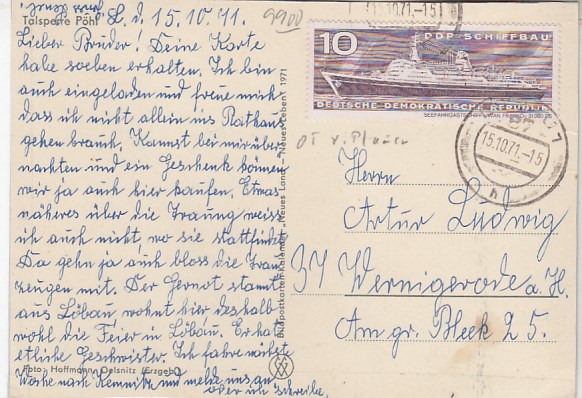 L. d. 15.10.71.
9900
Talsperre Pöhl
Lieber Bruder! Deine Karte
habe soeben erhalten. Ich bin
auch eingeladen und freue mich
dass ich nicht allein ins Rathaus
gehen brauch. Kannst bei mir über-
nachten und ein Geschenk können
wir ja auch hier kaufen. Etwas
näheres über die Trauung weiss
ich auch nicht, wo sie stattfindet
Da gehn ja auch bloss die Trau
zeugen mit. Der Gernot stammt
aus Löbau wohnt hier deshalb
wohl die Feier in Löbau. Er hat
etliche Geschwister. Ich fahre nächste
Foto: Hoffmann, Oelsnitz (Erzgeb.)
Woche nach Kemnitz und melde uns an
oder ich schreibe.
Bildpostkarten-Kalender „Neues Land – Neues Leben“ 1971
15.10.71.-15
10
DDR-SCHIFFBAU
DEUTSCHE DEMOKRATISCHE REPUBLIK
OT v. Plauen
15.10.71.-15
Herrn
Artur Ludwig
37 Wernigerode a. H.
Am gr. Bleek 25.